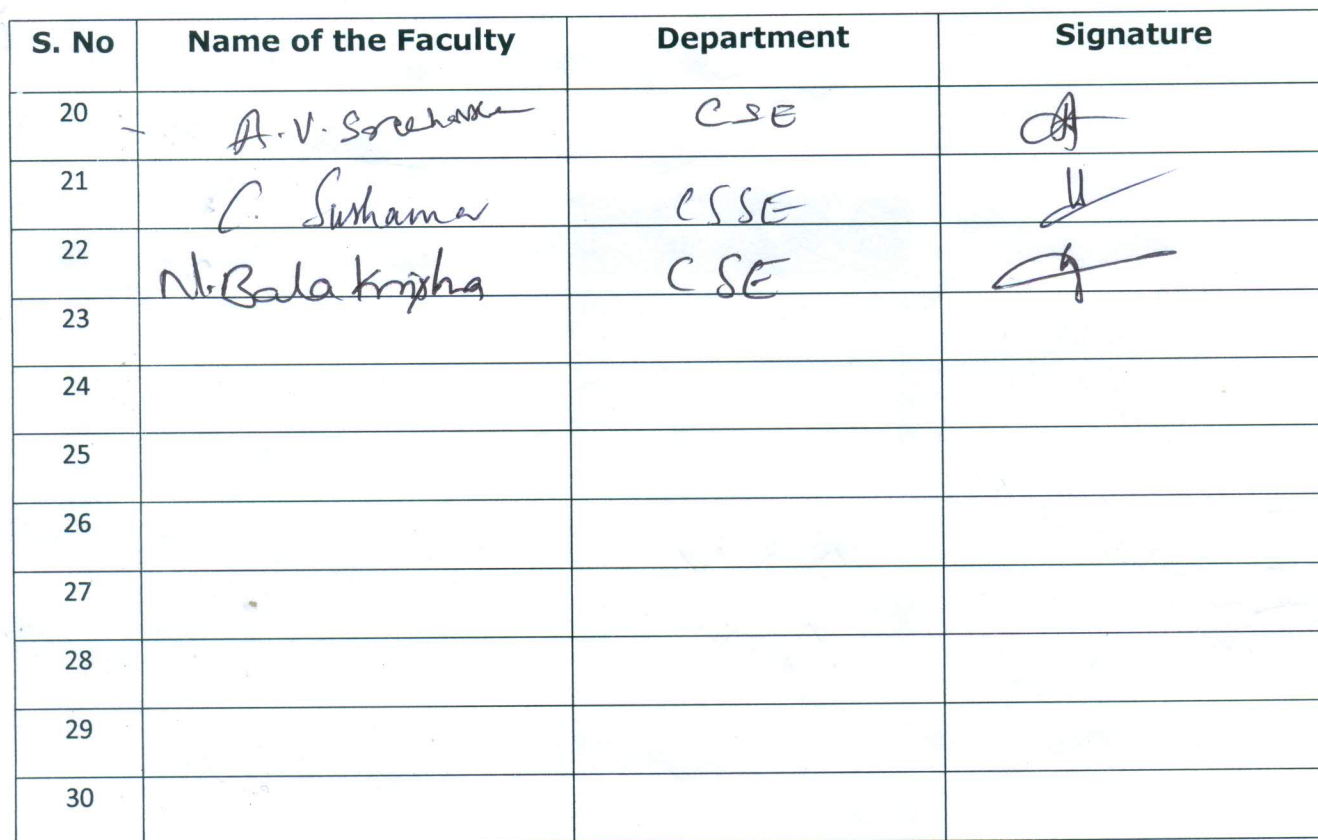 S. No Name of the Faculty Department Signature
20 A.V. Sreeharsha CSE
21 C. Sushama CSSE
22 N. Bala Krishna CSE
23
24
25
26
27
28
29
30